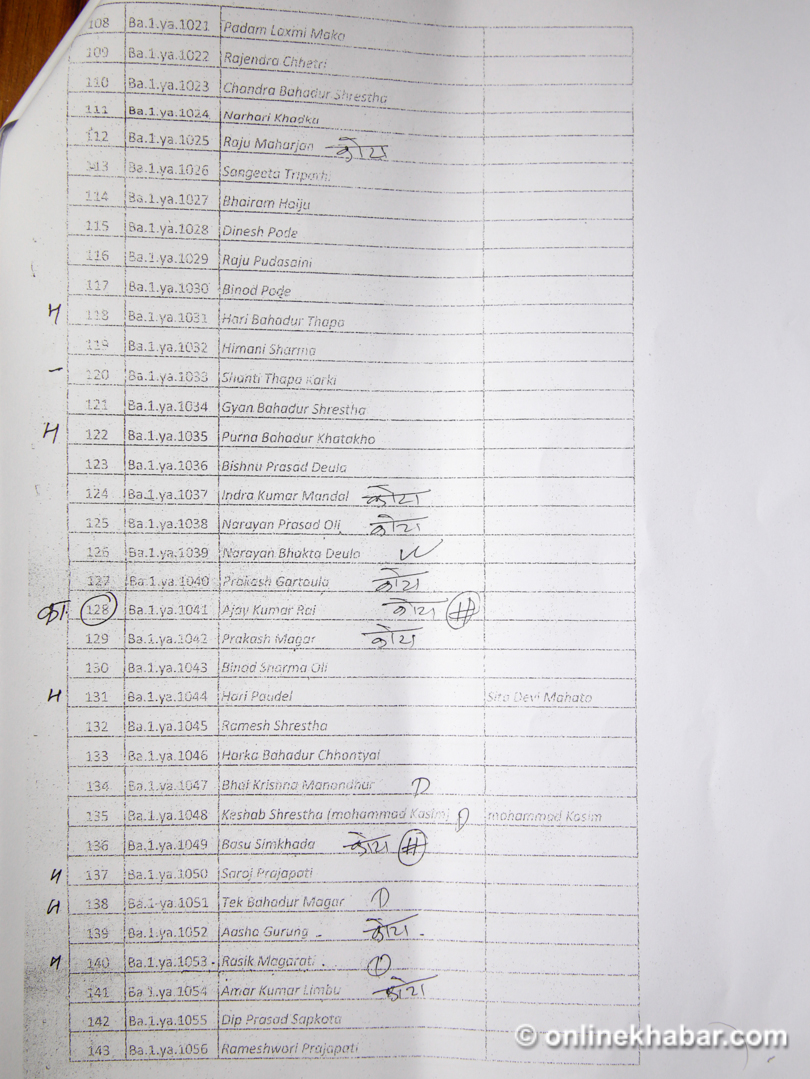 108 Ba.1.ya.1021 Padam Laxmi Maka
109 Ba.1.ya.1022 Rajendra Chhetri
110 Ba.1.ya.1023 Chandra Bahadur Shrestha
111 Ba.1.ya.1024 Narhari Khadka
112 Ba.1.ya.1025 Raju Maharjan
113 Ba.1.ya.1026 Sangeeta Tripathi
114 Ba.1.ya.1027 Bhairam Haiju
115 Ba.1.ya.1028 Dinesh Pode
116 Ba.1.ya.1029 Raju Pudasaini
117 Ba.1.ya.1030 Binod Pode
118 Ba.1.ya.1031 Hari Bahadur Thapa
119 Ba.1.ya.1032 Himani Sharma
120 Ba.1.ya.1033 Shanti Thapa Karki
121 Ba.1.ya.1034 Gyan Bahadur Shrestha
122 Ba.1.ya.1035 Purna Bahadur Khatakho
123 Ba.1.ya.1036 Bishnu Prasad Deula
124 Ba.1.ya.1037 Indra Kumar Mandal
125 Ba.1.ya.1038 Narayan Prasad Oli
126 Ba.1.ya.1039 Narayan Bhakta Deula
127 Ba.1.ya.1040 Prakash Gartaula
का. 128 Ba.1.ya.1041 Ajay Kumar Rai #
129 Ba.1.ya.1042 Prakash Magar
130 Ba.1.ya.1043 Binod Sharma Oli
131 Ba.1.ya.1044 Hari Paudel Sita Devi Mahato
132 Ba.1.ya.1045 Ramesh Shrestha
133 Ba.1.ya.1046 Harka Bahadur Chhontyal
134 Ba.1.ya.1047 Bhai Krishna Manandhar
135 Ba.1.ya.1048 Keshab Shrestha (mohammad Kasim) mohammad Kasim
136 Ba.1.ya.1049 Basu Simkhada #
137 Ba.1.ya.1050 Saroj Prajapati
138 Ba.1.ya.1051 Tek Bahadur Magar
139 Ba.1.ya.1052 Aasha Gurung
140 Ba.1.ya.1053 Rasik Magarati
141 Ba.1.ya.1054 Amar Kumar Limbu
142 Ba.1.ya.1055 Dip Prasad Sapkota
143 Ba.1.ya.1056 Rameshwori Prajapati
© onlinekhabar.com